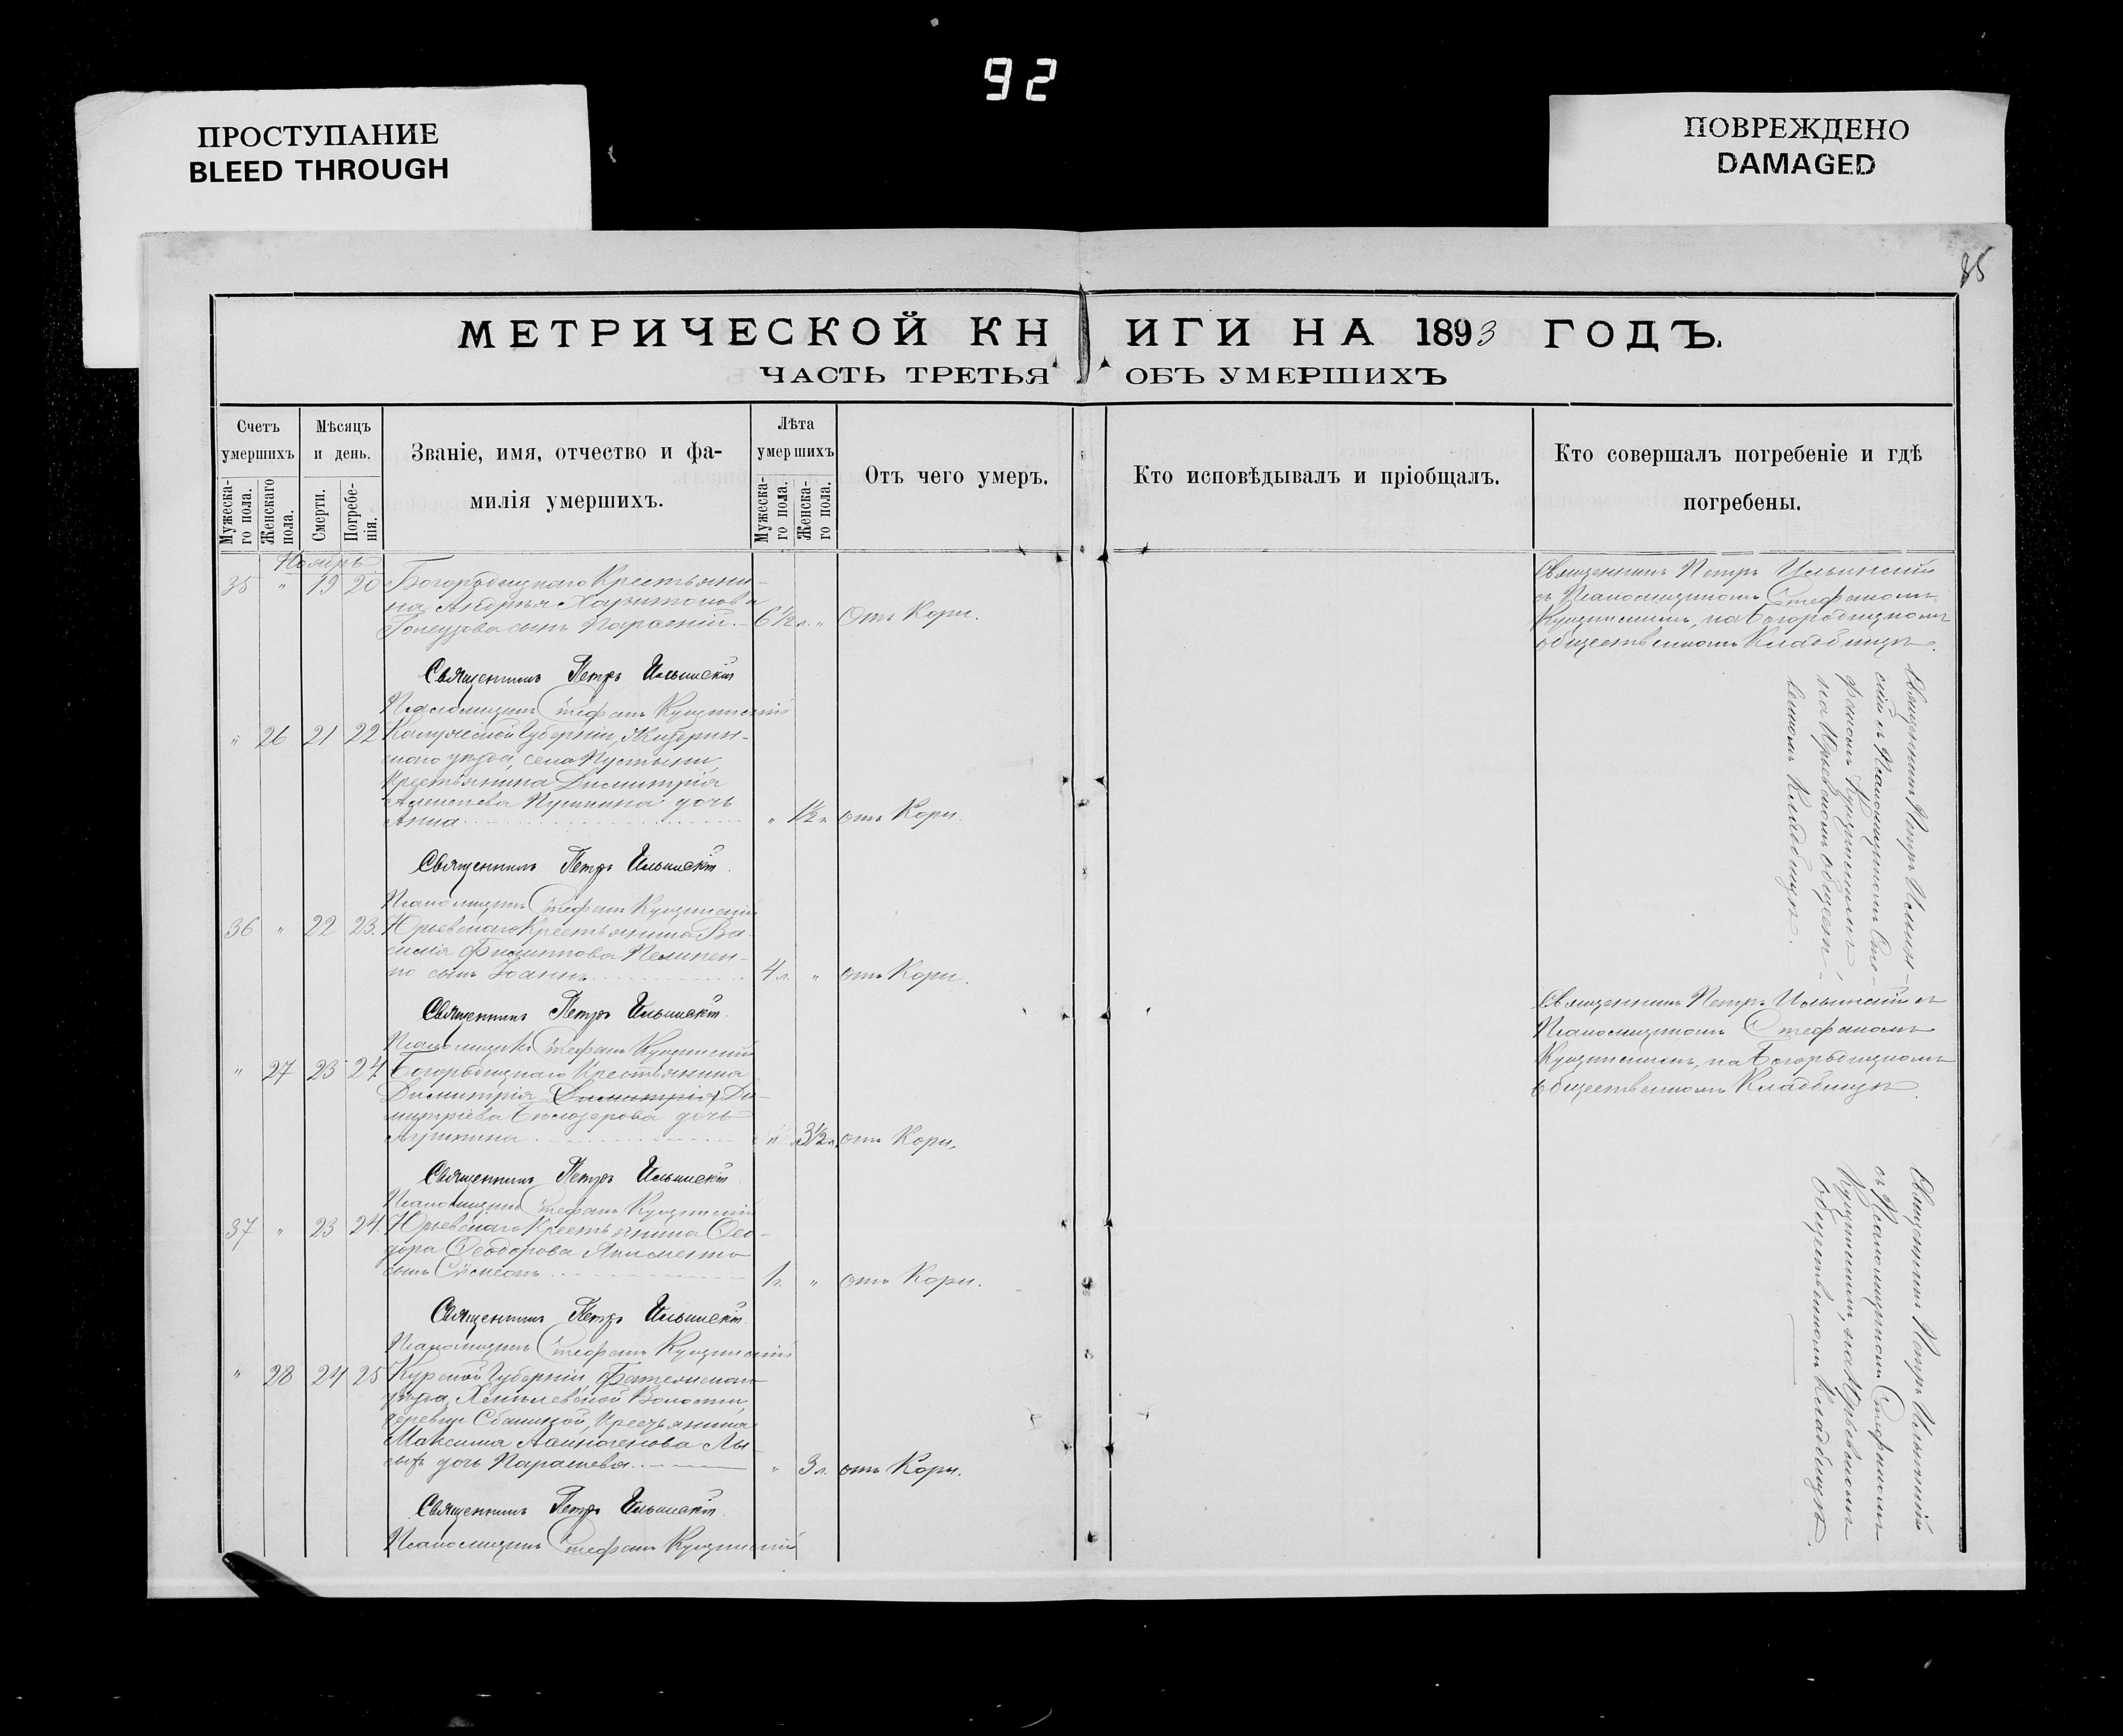 92
ПРОСТУПАНИЕ
BLEED THROUGH
ПОВРЕЖДЕНО
DAMAGED
85
МЕТРИЧЕСКОЙ КНИГИ НА 1893 ГОДЪ.
ЧАСТЬ ТРЕТЬЯ ОБЪ УМЕРШИХЪ
Счетъ умершихъ
Мужескаго пола.
Женскаго пола.
Мѣсяцъ и день.
Смерти.
Погребенія.
Званіе, имя, отчество и фа-
милія умершихъ.
Лѣта умершихъ
Мужескаго пола.
Женскаго пола.
Отъ чего умеръ.
Кто исповѣдывалъ и пріобщалъ.
Кто совершалъ погребеніе и гдѣ
погребены.
Ноябрь
35 " 19 20 Богородицкаго Крестьяни-
на Андрея Харитонова
сынъ Парѳеній. 6½ л. " Отъ Кори.
Священникъ Петръ Ильинскій
съ Псаломщикомъ Стефаномъ
на Богородицкомъ
общественномъ Кладбищѣ.
Священникъ Петръ Ильинскій
Псаломщикъ Стефанъ
" 26 21 22 Калужской Губерніи, Жиздрин-
скаго уѣзда, села Пустыни,
Крестьянина Димитрія
Алексѣева дочь
Анна " 1½ г. отъ Кори.
Священникъ Петръ Ильин-
скій съ Псаломщикомъ Сте-
фаномъ
на Юрьевскомъ общест-
венномъ Кладбищѣ.
Священникъ Петръ Ильинскій
Псаломщикъ Стефанъ
36 " 22 23. Юрьевскаго Крестьянина Ва-
силія Филиппова Пелипен-
ко сынъ Іоаннъ 4 л. " отъ Кори.
Священникъ Петръ Ильинскій съ
Псаломщикомъ Стефаномъ
на Богородицкомъ
общественномъ Кладбищѣ.
Священникъ Петръ Ильинскій
Псаломщикъ Стефанъ
" 27 23 24. Богородицкаго Крестьянина
Димитрія Димитрія Ди-
митріева Бѣлозерова дочь
" 3½ л. отъ Кори.
Священникъ Петръ Ильинскій
Псаломщикъ Стефанъ
37 " 23 24. Юрьевскаго Крестьянина Ѳео-
дора Ѳеодорова Якименко
сынъ Сѵмеонъ 1 г. " отъ Кори.
Священникъ Петръ Ильинскій
съ Псаломщикомъ Стефаномъ
на Юрьевскомъ
общественномъ Кладбищѣ.
Священникъ Петръ Ильинскій
Псаломщикъ Стефанъ
" 28 24 25 Курской Губерніи, Фатежскаго
уѣзда, Волости,
деревни Крестьянина
Максима
дочь Параскева " 3 л. отъ Кори.
Священникъ Петръ Ильинскій
Псаломщикъ Стефанъ